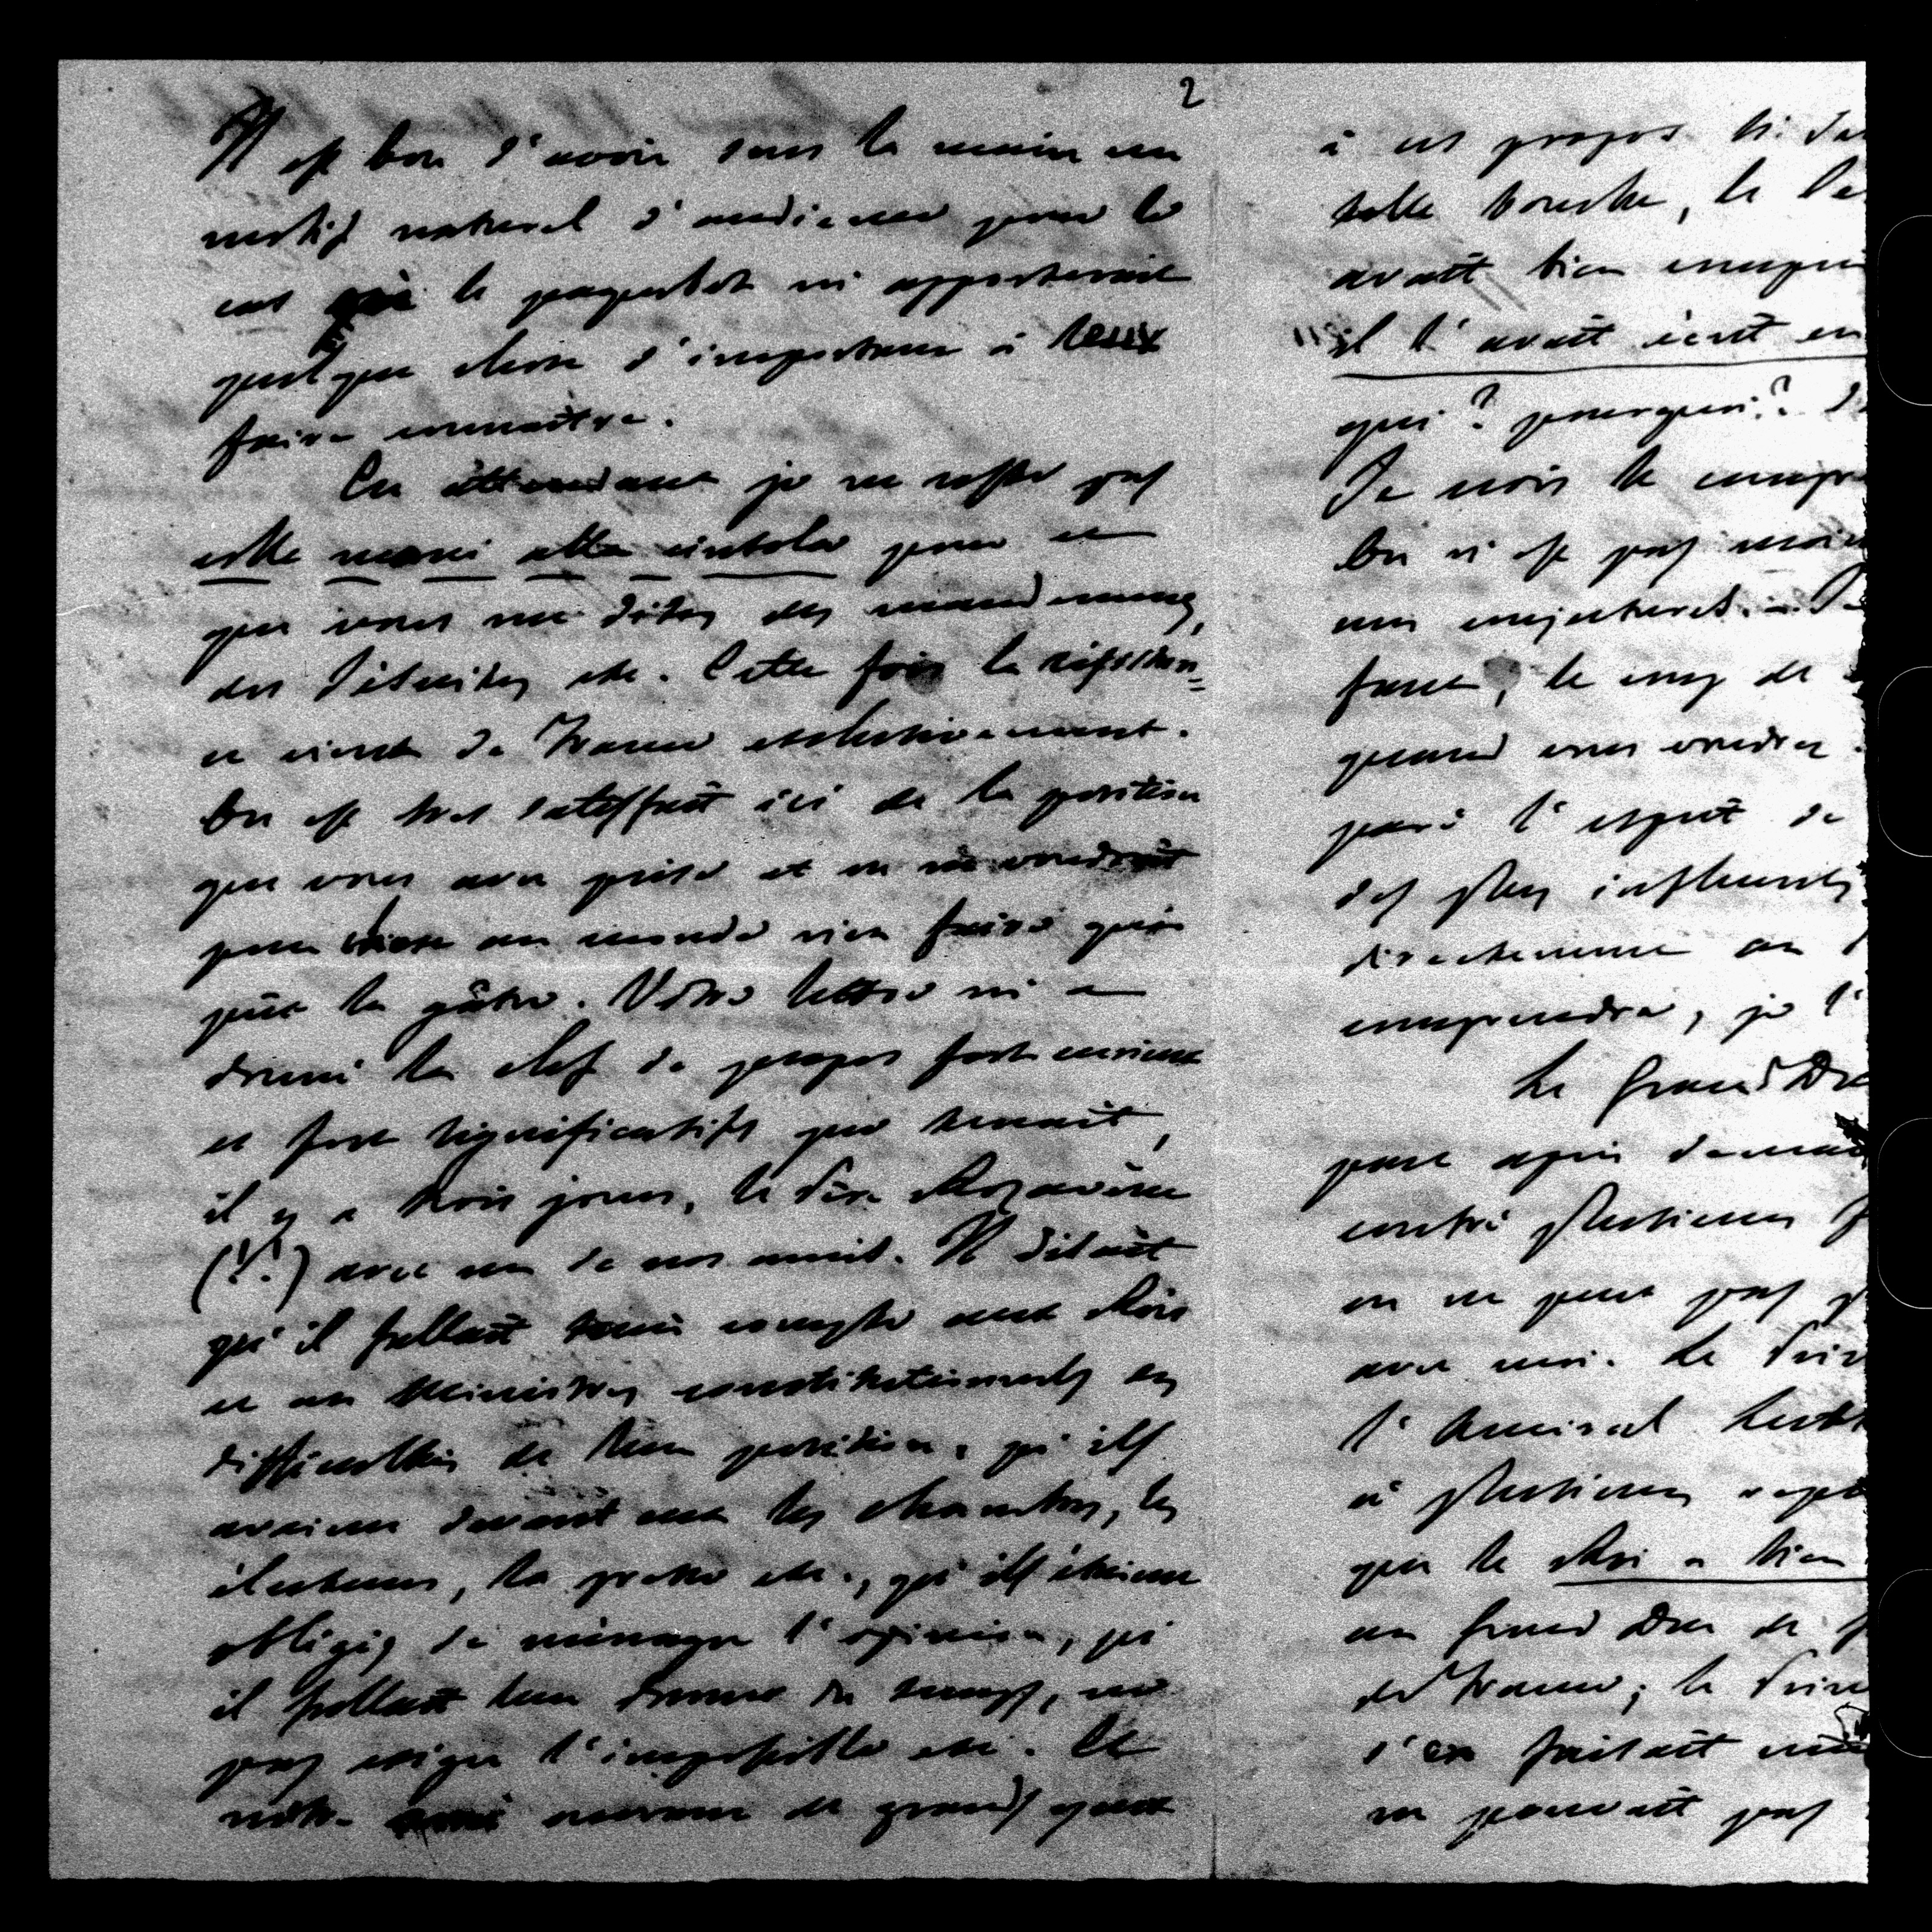 2
Il est bon d'avoir sous la main un
motif naturel d'audience pour le
cas où le paquebot m'apporterait
quelque chose d'important à leur
faire connaître.
En attendant je ne reste pas
colle mani alla cintola pour ce
que vous me dites des mandemens,
des Jésuites etc. Cette fois la résistan=
ce vient de France exclusivement.
On est très satisfait ici de la position
que vous avez prise et on ne voudrait
pour chose au monde rien faire qui
pût la gâter. Votre lettre m'a
donné la clef de propos fort curieux
et fort significatifs que tenait,
il y a trois jours, le Père Rozaven
(!!) avec un de nos amis. Il disait
qu'il fallait tenir compte aux Rois
et aux Ministres constitutionnels des
difficultés de leur position, qu'ils
avaient devant eux les chambres, les
électeurs, la presse etc., qu'ils étaient
obligés de ménager l'opinion, qu'
il fallait leur donner du temps, ne
pas exiger l'impossible etc. Et
notre ami ouvrant de grands yeux
à ces propos et dans
telle bouche, le Pè
avait bien compris
il l'avait écrit en
qui? pourquoi?
Je crois le compr
On n'est pas moin
mes conjectures.
France, le coq de
quand vous voudrez.
paré l'esprit de
des plus influents
directement au
comprendre, je l'
Le Grand Duc
part après demain
contré plusieurs f
on ne peut pas p
avec moi. Le Prin
l'Amiral
à plusieurs
que le Roi a bien
au Grand Duc de
de France; le Prin
s'en faisait
ne pouvait pas